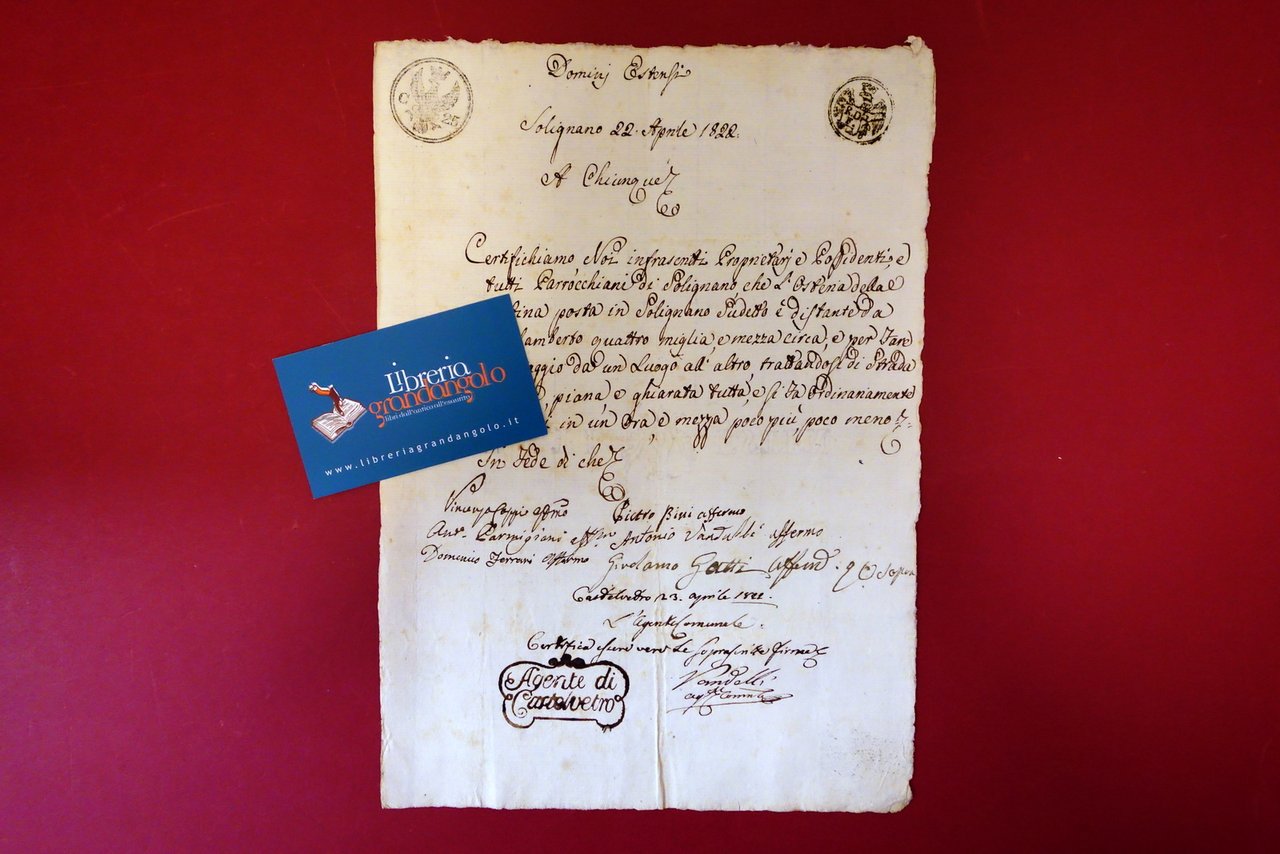 Dominj Estensi
C 25
Solignano 22. Aprile 1822.
A Chiunque
Certifichiamo Noi infrascritti Proprietarj e Possidenti, e
tutti Parrocchiani di Solignano che L'Osteria della
tina posta in Solignano Sudetto è distante da
lamberto quattro miglia e mezza circa, e per Fare
aggio da un Luogo all'altro, trattandosi di Strada
piana e ghiarata tutta, e si fa Ordinariamente
in un'Ora, e mezza poco più, poco meno
In Fede di che
Pietro Bini affermo
Parmigiani Antonio Vandelli affermo
Domenico Ferrari affermo Girolamo Gatti
Castelvetro 23. aprile 1822.
L'Agente Comunale.
Certifica essere vere le Soprascritte firme
Vandelli
Agente di
Castelvetro
Libreria
grandangolo
libri dall'antico all'esaurito
www.libreriagrandangolo.it